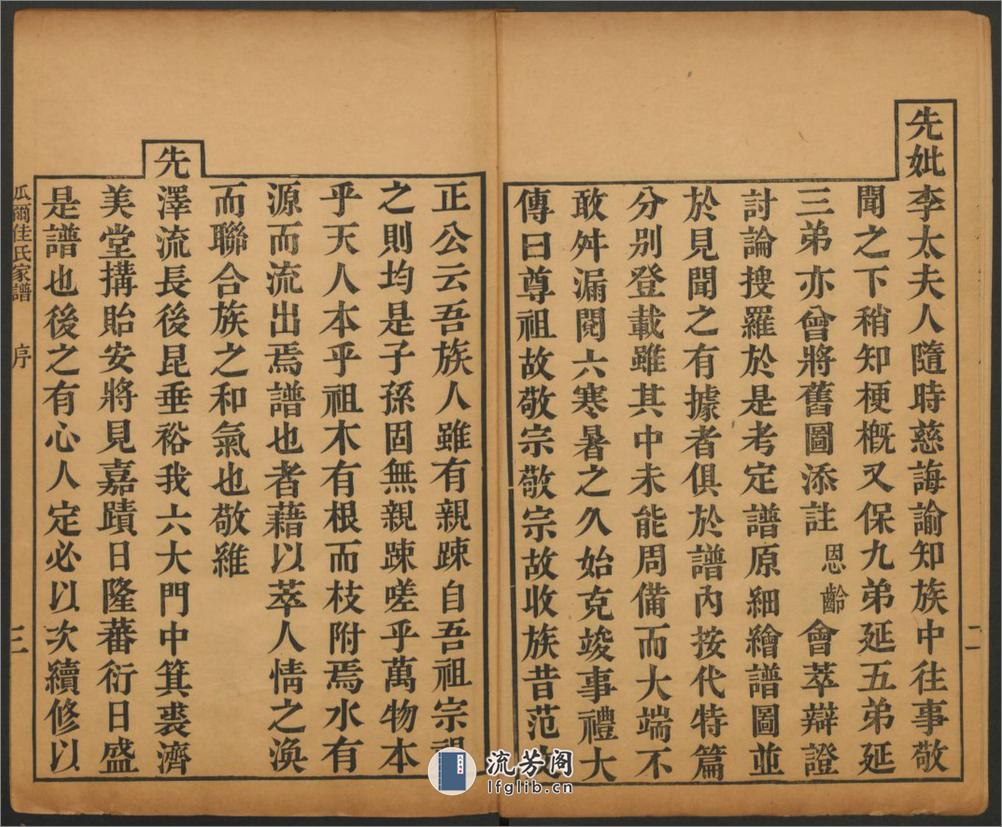 先妣李太夫人隨時慈誨諭知族中往事敬
聞之下稍知梗概又保九弟延五弟延
三弟亦曾將舊圖添註恩齡會萃辯證
討論搜羅於是考定譜原細繪譜圖並
於見聞之有據者俱於譜內按代特篇
分別登載雖其中未能周備而大端不
敢舛漏閱六寒暑之久始克竣事禮大
傳曰尊祖故敬宗敬宗故收族昔范
二
正公云吾族人雖有親踈自吾祖宗視
之則均是子孫固無親踈嗟乎萬物本
乎天人本乎祖木有根而枝附焉水有
源而流出焉譜也者藉以萃人情之渙
而聯合族之和氣也敬維
先澤流長後昆垂裕我六大門中箕裘濟
美堂搆貽安將見嘉蹟日隆蕃衍日盛
是譜也後之有心人定必以次續修以
瓜爾佳氏家譜 序 三
流芳阁
lfglib.cn